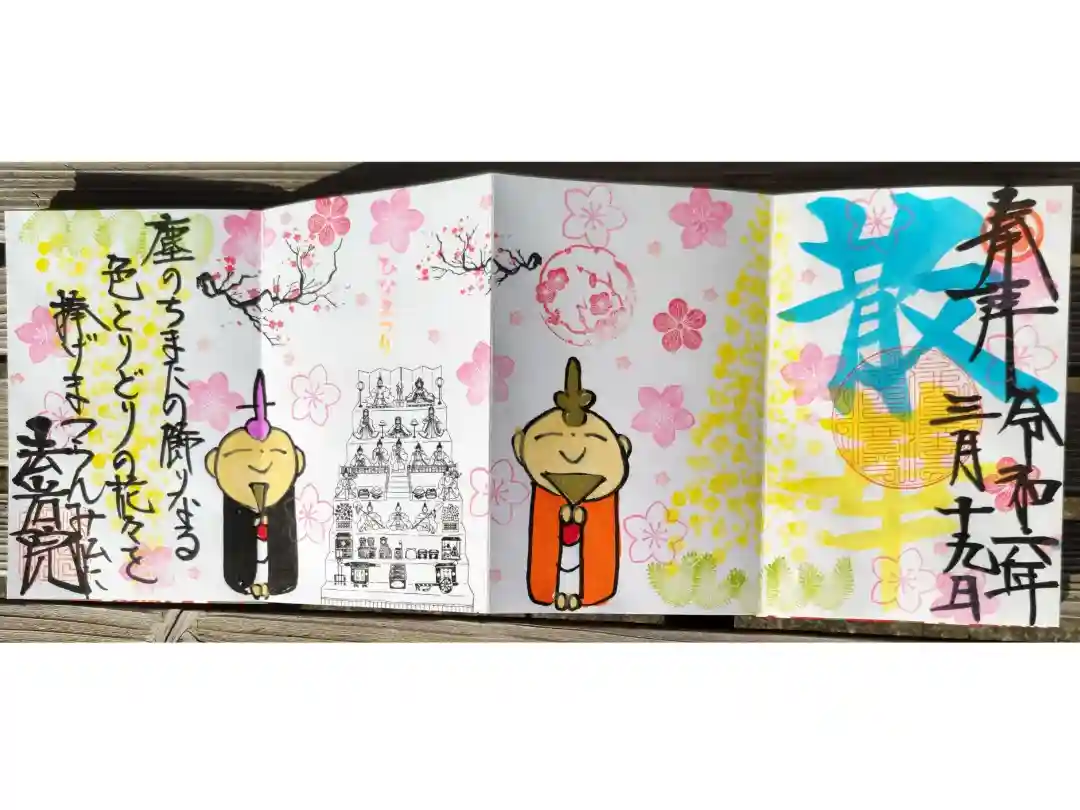 奉拝 令和六年
三月十九日
散
ひなまつり
塵のちまたの飾りなる
色とりどりの花々を
捧げまつらんみ仏に